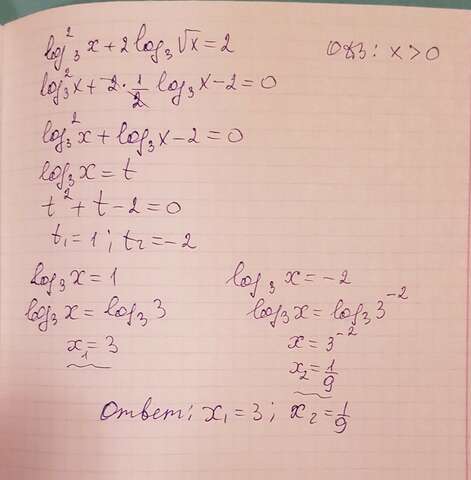 log₃²x + 2 log₃√x = 2    ОДЗ: x > 0
log₃²x + 2 · 1/2 log₃x − 2 = 0
log₃²x + log₃x − 2 = 0
log₃x = t
t² + t − 2 = 0
t₁ = 1 ; t₂ = −2
log₃x = 1    log₃x = −2
log₃x = log₃3    log₃x = log₃3⁻²
x₁ = 3    x = 3⁻²
x₂ = 1/9
Ответ: x₁ = 3 ; x₂ = 1/9